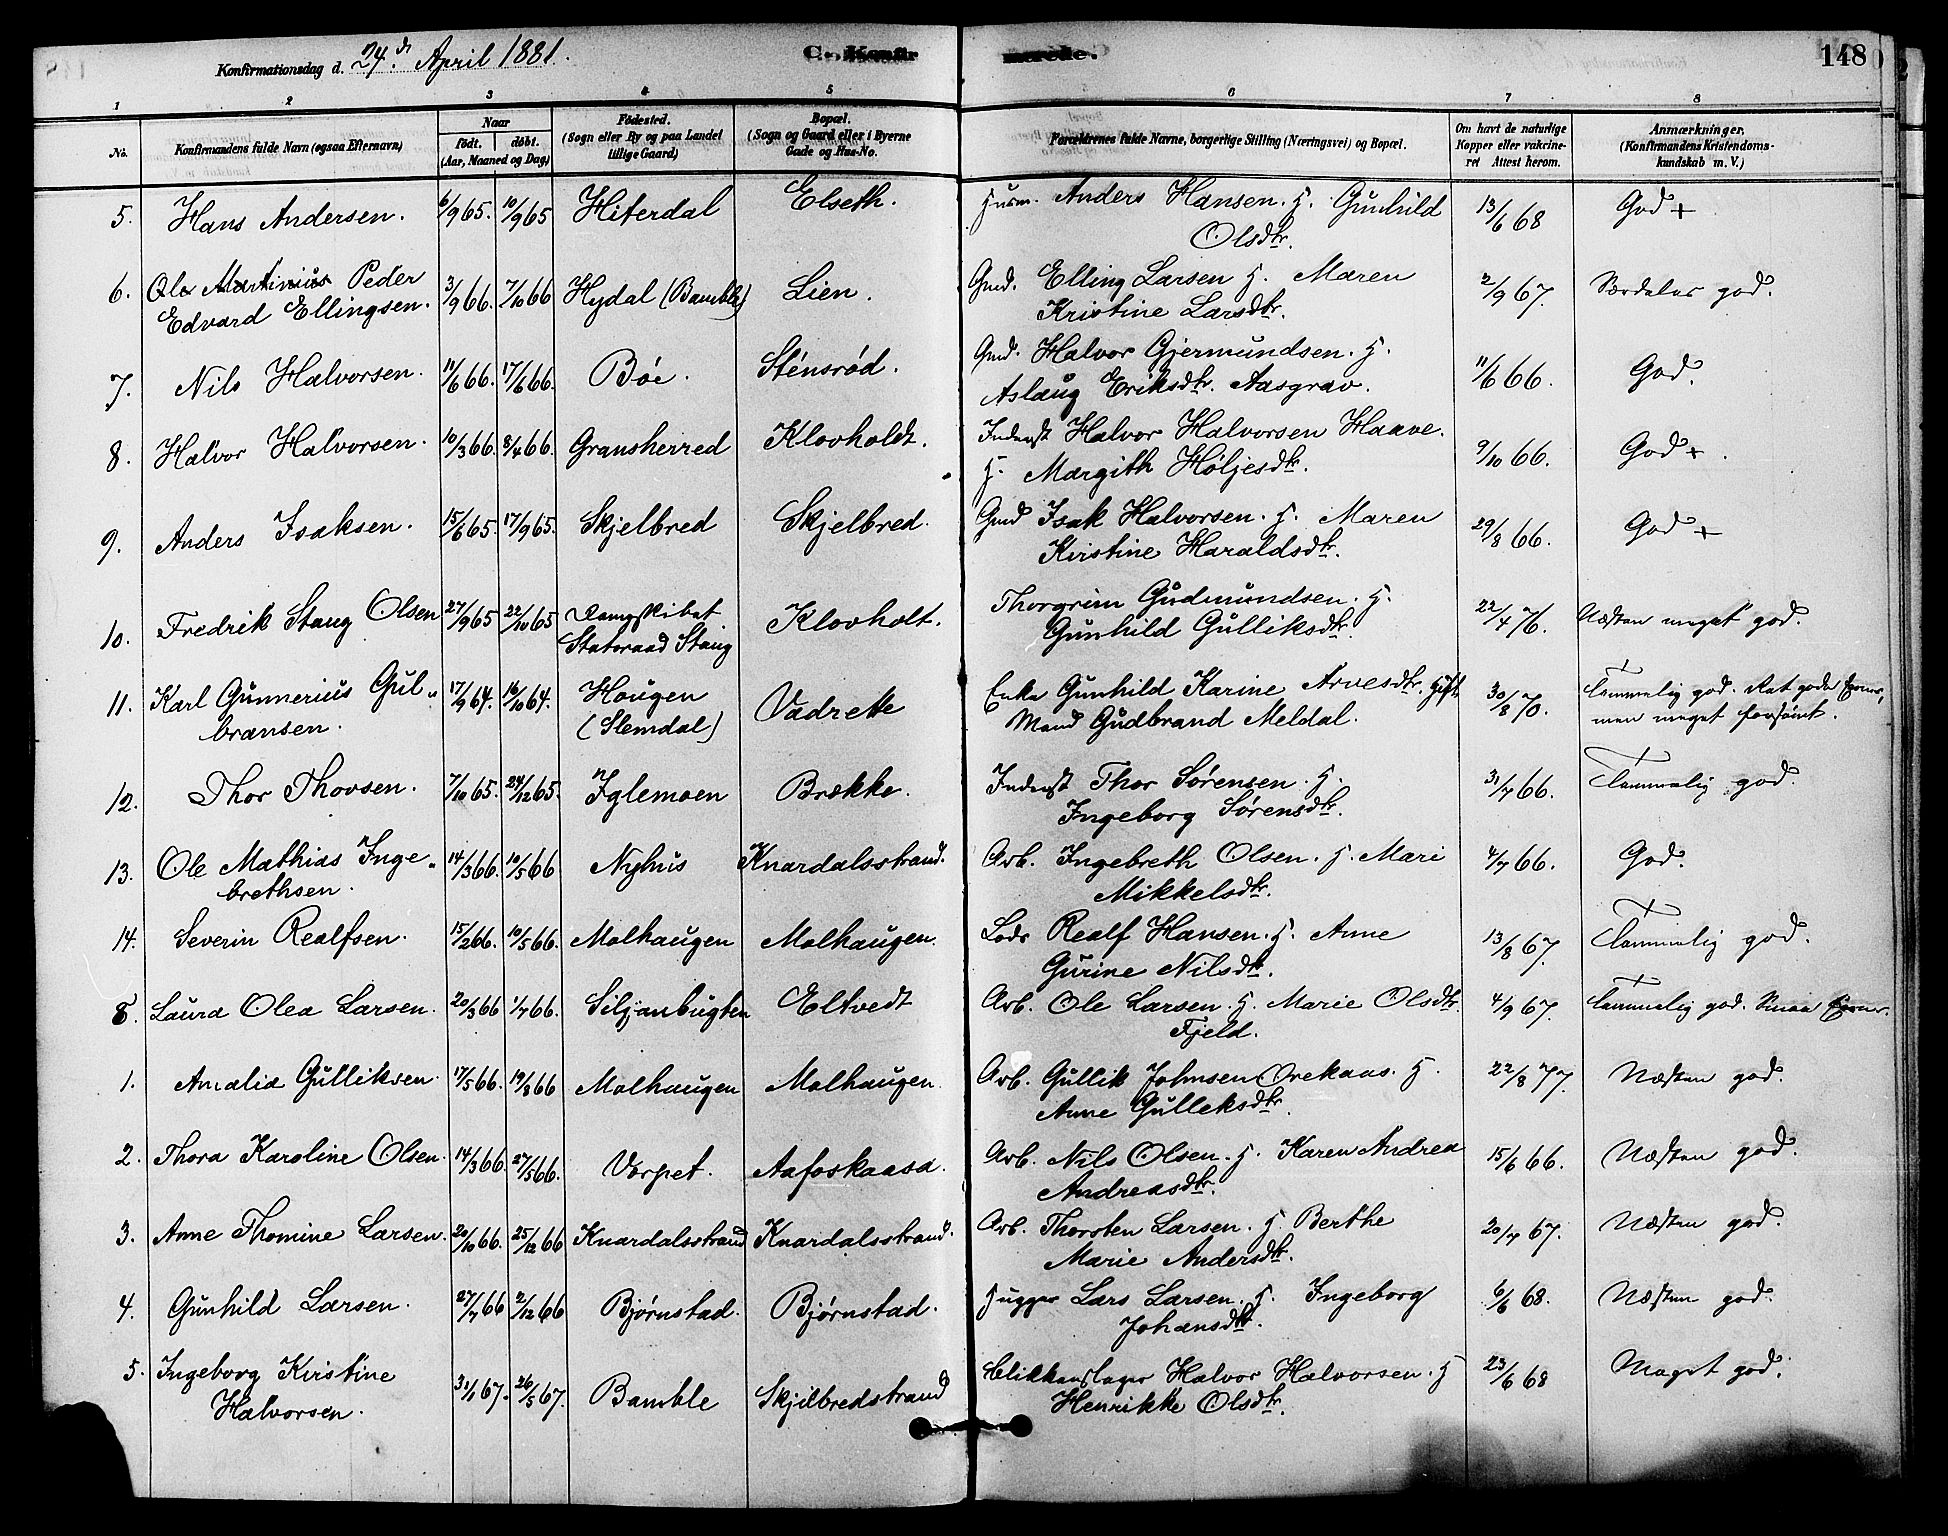 Konfirmationsdag d. 24d April 1881. C. Konfirmerede. 148
1 2 3 4 5 6 7 8
No. Konfirmandens fulde Navn (ogsaa Efternavn) Naar født. døbt. (Aar, Maaned og Dag) Fødested. (Sogn eller By og paa Landet tillige Gaard) Bopæl. (Sogn og Gaard eller i Byerne Gade og Hus-No. Forældrenes fulde Navne, borgerlige Stilling (Næringsvei) og Bopæl. Om havt de naturlige Kopper eller vakcineret Attest herom. Anmærkninger. (Konfirmandens Kristendomskundskab m. V.)
5. Hans Andersen. 6/9 65. 10/9 65 Hiterdal Elseth. Husm. Anders Hansen. H. Gunhild 13/6 68 God +
Olsdtr.
6. Ole Martinius Peder 3/9 66. 7/10 66 Hydal (Bamble) Lien. Gmd. Elling Larsen H. Maren 2/9 67. Særdeles god.
Edvard Ellingsen. Kristine Larsdtr.
7. Nils Halvorsen. 11/6 66. 17/6 66. Bøe. Stensrød. Gmd. Halvor Gjermundsen. H. 11/6 66. God.
Aslaug Eriksdtr. Aasgrav.
8. Halvor Halvorsen. 10/3 66. 8/4 66. Gransherred Klovholdt. Inderst Halvor Halvorsen Haave. 9/10 66. God +.
H. Margith Høljesdtr.
9. Anders Isaksen. 15/6 65. 17/9 65. Skjelbred Skjelbred. Gmd Isak Halvorsen. H. Maren 29/8 66. God +
Kirstine Haraldsdtr.
10. Fredrik Stang Olsen 27/9 65 22/10 65 Dampskibet Klovholt. Thorgrim Gudmundsen. H. 22/4 76. Næsten meget god.
Statsraad Stang Gunhild Gulliksdtr.
11. Karl Gunnerius Gul- 17/9 64. 16/10 64. Hougen Vadrette Enke Gunhild Karine Arvesdtr. Gift 30/8 70. Temmelig god. Ret gode Evner,
bransen. (Slemdal) Mand Gudbrand Meldal. men meget forsømt.
12. Thor Thovsen. 7/10 65. 24/12 65. Iglemoen Brække. Inderst Thor Sørensen. H. 31/7 66. Temmelig god.
Ingeborg Sørensdtr.
13. Ole Mathias Inge- 14/3 66. 10/5 66 Nyhus Knardalsstrand. Arb. Ingebreth Olsen. H. Mari 4/7 66. God.
brethsen. Mikkelsdtr.
14. Severin Realfsen. 15/2 66. 10/5 66. Malhaugen Malhaugen. Lods Realf Hansen. H. Anne 13/8 67. Temmelig god.
Gurine Nilsdtr.
8. Laura Olea Larsen. 20/3 66 1/7 66. Siljanbugten Eltvedt Arb. Ole Larsen. H. Marie Olsdtr. 4/9 67. Temmelig god. Smaa Evner.
Fjeld.
1. Amalia Gulliksen. 17/5 66. 19/8 66 Malhaugen Malhaugen. Arb. Gullik Johnsen Orekaas. H. 22/8 77. Næsten god.
Anne Gulleksdtr.
2. Thora Karoline Olsen. 14/3 66. 27/5 66. Vorpet. Aafoskaasa. Arb. Nils Olsen. H. Karen Andrea 15/6 66. Næsten god.
Andreasdtr.
3. Anne Thomine Larsen. 20/10 66. 25/12 66 Knardalsstrand Knardalsstrand. Arb. Thorsten Larsen. H. Berthe 20/7 67. Næsten god.
Marie Andersdtr.
4. Gunhild Larsen. 27/7 66 2/12 66 Bjørnstad. Bjørnstad. Hugger Lars Larsen. H. Ingeborg 6/6 68. Næsten god.
Johansdtr.
5. Ingeborg Kirstine 31/1 67. 26/5 67. Bamble Skjilbredstrand Blikkenslager Halvor Halvorsen. H 23/6 68 Meget god.
Halvorsen. Henrikke Olsdtr.